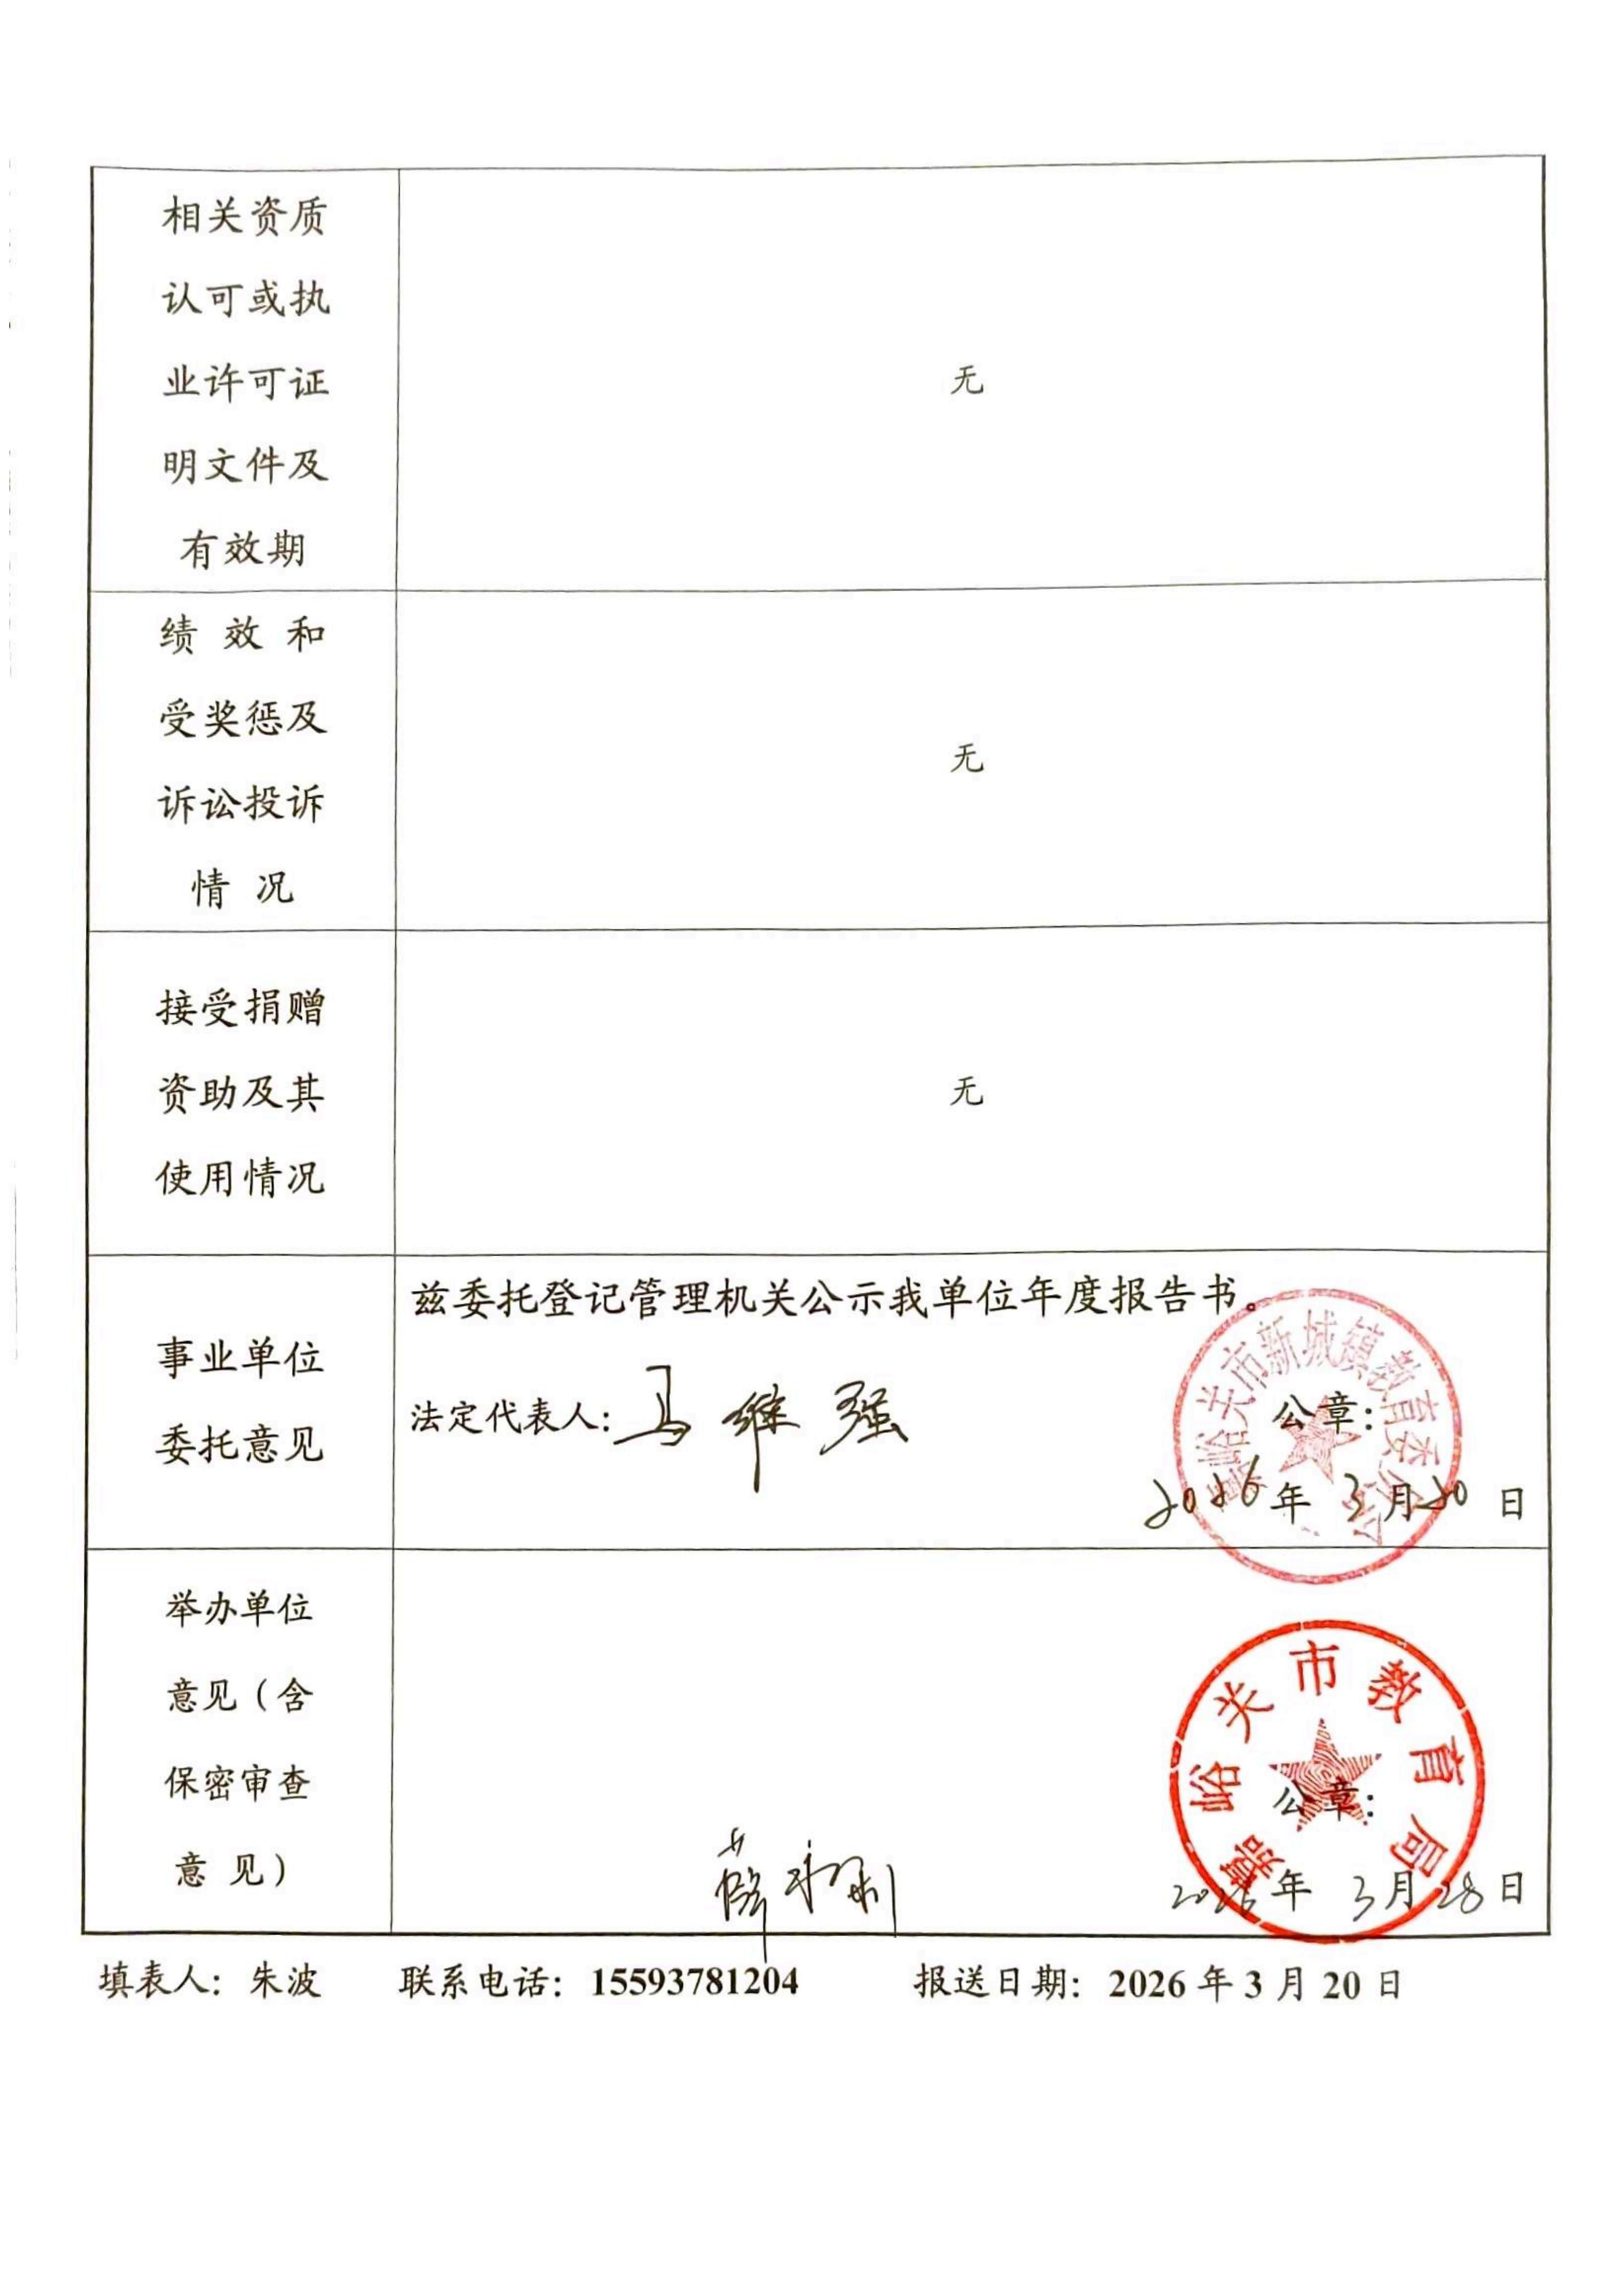 相关资质
认可或执
业许可证
明文件及
有效期
无
绩 效 和
受奖惩及
诉讼投诉
情 况
无
接受捐赠
资助及其
使用情况
无
事业单位
委托意见
兹委托登记管理机关公示我单位年度报告书。
法定代表人：马继强
公章：
2026年 3月20 日
嘉峪关市新城镇教育委员会
举办单位
意见（含
保密审查
意 见）
嘉峪关市教育局
公章：
2026年 3月28日
填表人：朱波 联系电话：15593781204 报送日期：2026年3月20日